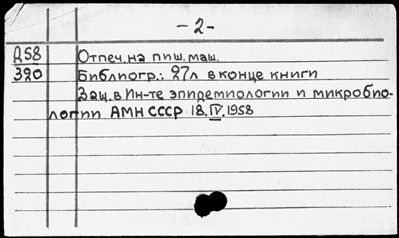 - 2 -
Д58 Отпеч. на пиш. маш.
320 Библиогр.: 27л в конце книги
Защ. в Ин-те эпидемиологии и микробио-
логии АМН СССР 18.IV.1958